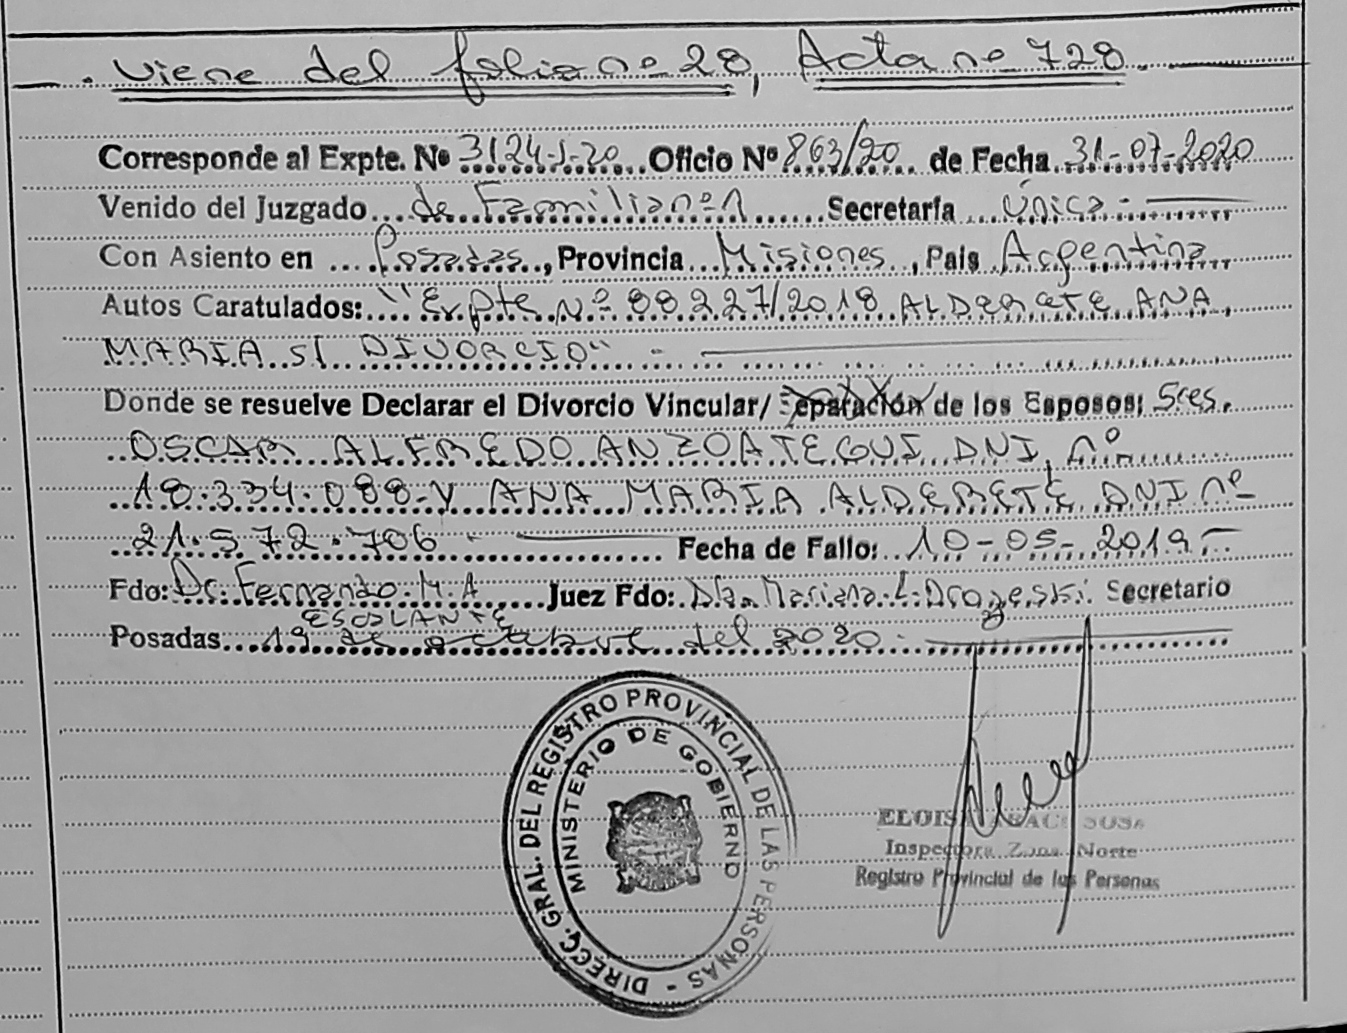 . viene del folio nº 28, Acta nº 728.
Corresponde al Expte. Nº 3124-J-20 Oficio Nº 863/20 de Fecha 31-07-2020
Venido del Juzgado de Familia nº 1 Secretaría Única.-
Con Asiento en Posadas, Provincia Misiones, País Argentina
Autos Caratulados: "Expte Nº 88.227/2018 ALDERETE ANA
MARIA S/ DIVORCIO" -
Donde se resuelve Declarar el Divorcio Vincular/ Separación de los Esposos; Sres.
OSCAR ALFREDO ANZOATEGUI DNI, nº
18.334.088-Y ANA MARIA ALDERETE DNI nº
21.572.706 - Fecha de Fallo: 10-05-2019-
Fdo: Dr. Fernando M. A. Juez Fdo: Dra. Mariana L. Secretario
ESCALANTE
Posadas 19 de octubre del 2020.-
DIRECC. GRAL. DEL REGISTRO PROVINCIAL DE LAS PERSONAS -
MINISTERIO DE GOBIERNO
SOSA
Inspectora Zona Norte
Registro Provincial de las Personas